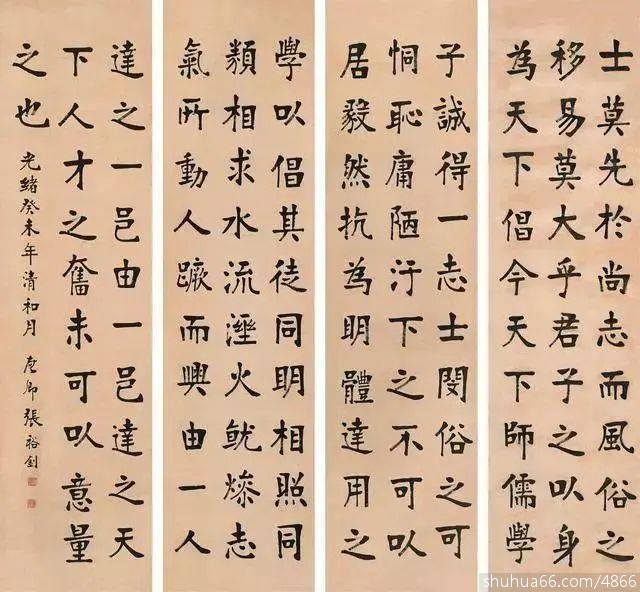 士莫先於尚志而風俗之
移易莫大乎君子之以身
為天下倡今天下師儒學
子誠得一志士閔俗之可
恫恥庸陋汙下之不可以
居毅然抗為明體達用之
學以倡其徒同明相照同
類相求水流溼火就燥志
氣所動人蹶而興由一人
達之一邑由一邑達之天
下人才之奮未可以意量
之也
光緒癸未年清和月 廉卿張裕釗
shuhua66.com/4866